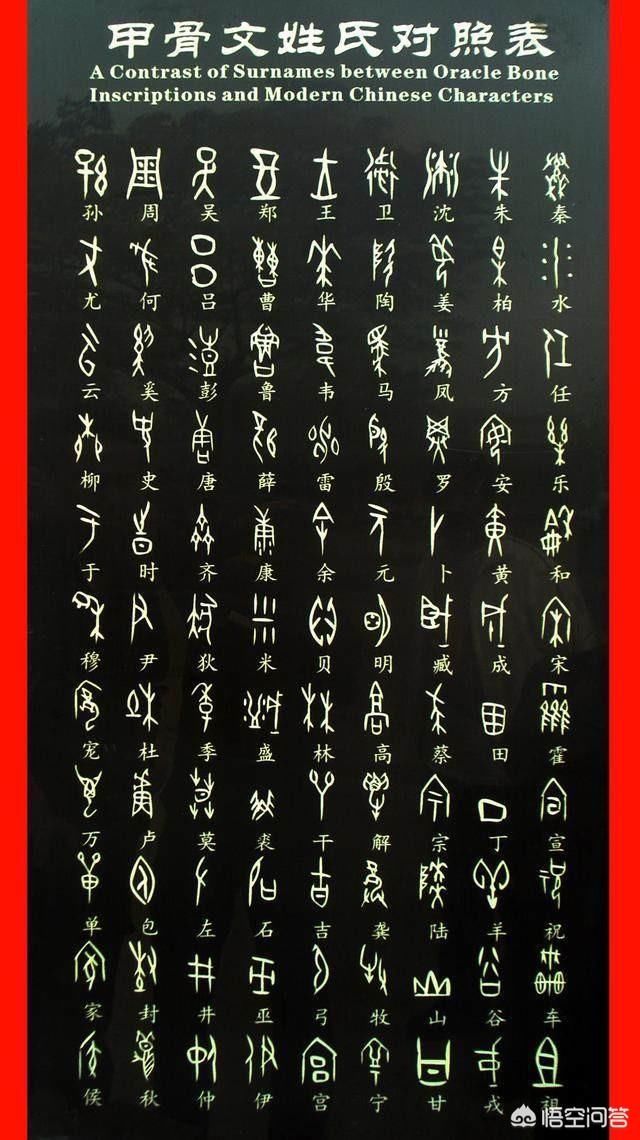 甲骨文姓氏对照表
A Contrast of Surnames between Oracle Bone
Inscriptions and Modern Chinese Characters
孙 周 吴 郑 王 卫 沈 朱 秦
尤 何 吕 曹 华 陶 姜 柏 水
云 奚 彭 鲁 韦 马 凤 方 任
柳 史 唐 薛 雷 殷 罗 安 乐
于 时 齐 康 余 元 卜 黄 和
穆 尹 狄 米 贝 明 臧 成 宋
宠 杜 季 盛 林 高 蔡 田 霍
万 卢 莫 裘 干 解 宗 丁 宣
单 包 左 石 吉 龚 陆 羊 祝
家 封 井 巫 弓 牧 山 谷 车
侯 秋 仲 伊 宫 宁 甘 戎 祖
悟空问答